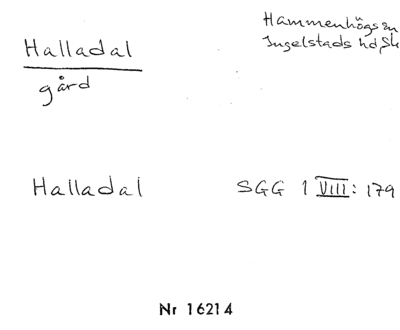 Halladal
gård
Hammenhögs sn
Ingelstads hd Sk
Halladal
SGG 1 VIII: 179
Nr 16214